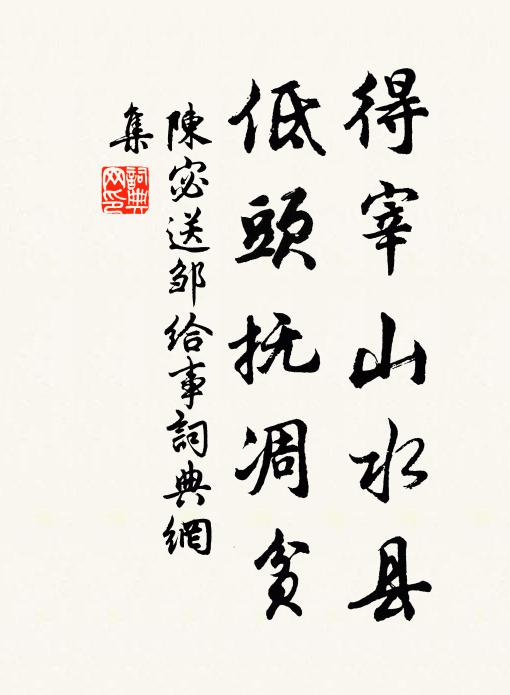 得宰山水县
低頭抚凋貧
陳宓送邹给事詞典網
集
詞典網印